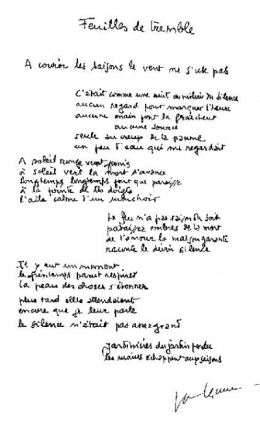 Feuilles de tremble
A courir les saisons le vent ne s'use pas
C'était comme une nuit au milieu du silence
aucun regard pour marquer l'heure
aucune main pour la fraîcheur
aucune source
seule au creux de la paume
un peu d'eau qui me regardait
A soleil rouge vent promis
à soleil vert la mort d'avance
longtemps longtemps pour que paraisse
à la pointe de tes doigts
l'aile calme d'un mouchoir
Le feu n'a pas saison de soif
paraissez ombres de la mort
de l'amour la
silence
Il y eut un moment
le printemps parut respirer
la peau des choses s'étonner
plus tard elles attendaient
encore que je leur parle
le silence n'était pas assez grand
Jardinières du jardin perdu
les mains échappent aux saisons